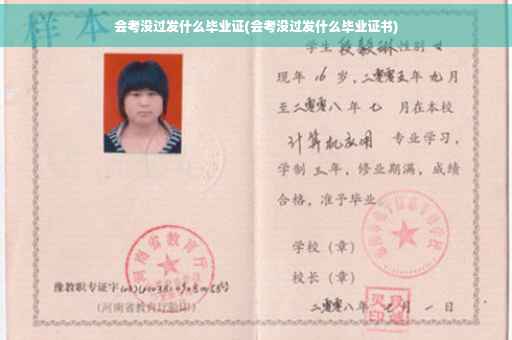 会考没过发什么毕业证(会考没过发什么毕业证书)
样本
学生段毅琳性别女
现年16岁，二零零五年九月
至二零零八年七月在本校
计算机应用专业学习，
学制三年，修业期满，成绩
合格，准予毕业。
学校（章）
校长（章）
二零零八年七月一日
河南省教育厅
豫教职专证字
号
(河南省教育厅验印)